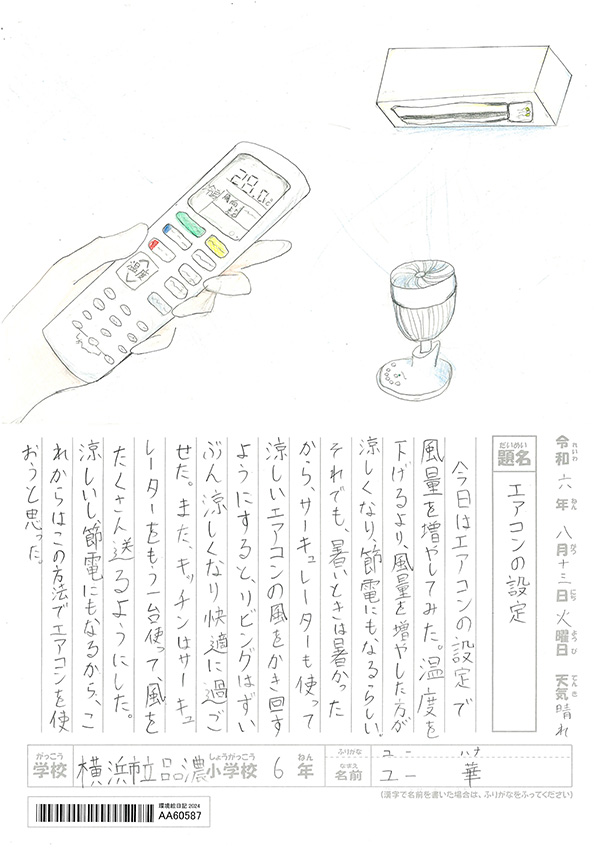 28.0℃
冷房
風量
温度
令和六年八月十三日火曜日 天気晴れ
れいわ ねん がつ にち ようび てんき
だいめい
題名
エアコンの設定
今日はエアコンの設定で
風量を増やしてみた。温度を
下げるより、風量を増やした方が
涼しくなり、節電にもなるらしい。
それでも、暑いときは暑かった
から、サーキュレーターも使って
涼しいエアコンの風をかき回す
ようにすると、リビングはずい
ぶん涼しくなり快適に過ご
せた。また、キッチンはサーキュ
レーターをもう一台使って、風を
たくさん送るようにした。
涼しいし、節電にもなるから、こ
れからはこの方法でエアコンを使
おうと思った。
がっこう しょうがっこう ねん
学校 横浜市立品濃小学校 6年
ふりがな ユー ハナ
なまえ
名前 ユー 華
(漢字で名前を書いた場合は、ふりがなをふってください)
環境絵日記2024
AA60587